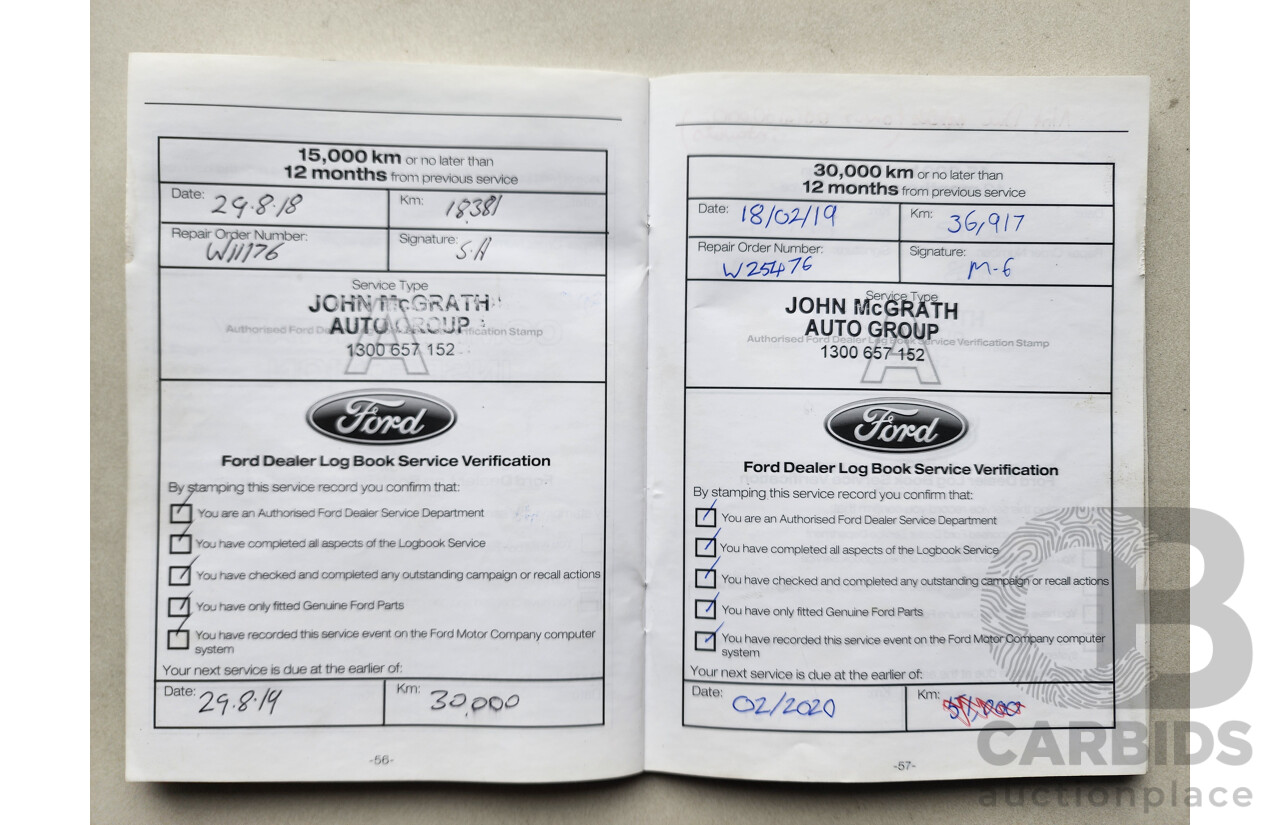 15,000 km or no later than
12 months from previous service
Date: 29.8.18
Km: 18381
Repair Order Number: W11176
Signature: S.A
Service Type
JOHN McGRATH
AUTO GROUP
Authorised Ford Dealer Log Book Service Verification Stamp
1300 657 152
A
Ford
Ford Dealer Log Book Service Verification
By stamping this service record you confirm that:
You are an Authorised Ford Dealer Service Department
You have completed all aspects of the Logbook Service
You have checked and completed any outstanding campaign or recall actions
You have only fitted Genuine Ford Parts
You have recorded this service event on the Ford Motor Company computer
system
Your next service is due at the earlier of:
Date: 29.8.19
Km: 30,000
-56-
30,000 km or no later than
12 months from previous service
Date: 18/02/19
Km: 36,917
Repair Order Number: W25476
Signature: M-G
Service Type
JOHN McGRATH
AUTO GROUP
Authorised Ford Dealer Log Book Service Verification Stamp
1300 657 152
A
Ford
Ford Dealer Log Book Service Verification
By stamping this service record you confirm that:
You are an Authorised Ford Dealer Service Department
You have completed all aspects of the Logbook Service
You have checked and completed any outstanding campaign or recall actions
You have only fitted Genuine Ford Parts
You have recorded this service event on the Ford Motor Company computer
system
Your next service is due at the earlier of:
Date: 02/2020
Km:
-57-
CB
CARBIDS
auctionplace